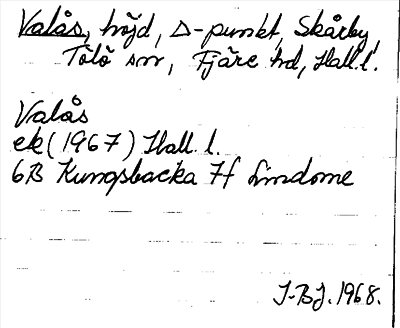 Valås, höjd, Δ-punkt, Skårby,
Tölö sn, Fjäre hd, Hall. l.
Valås
ek (1967) Hall. l.
6B Kungsbacka 7f Lindome
J-BJ. 1968.